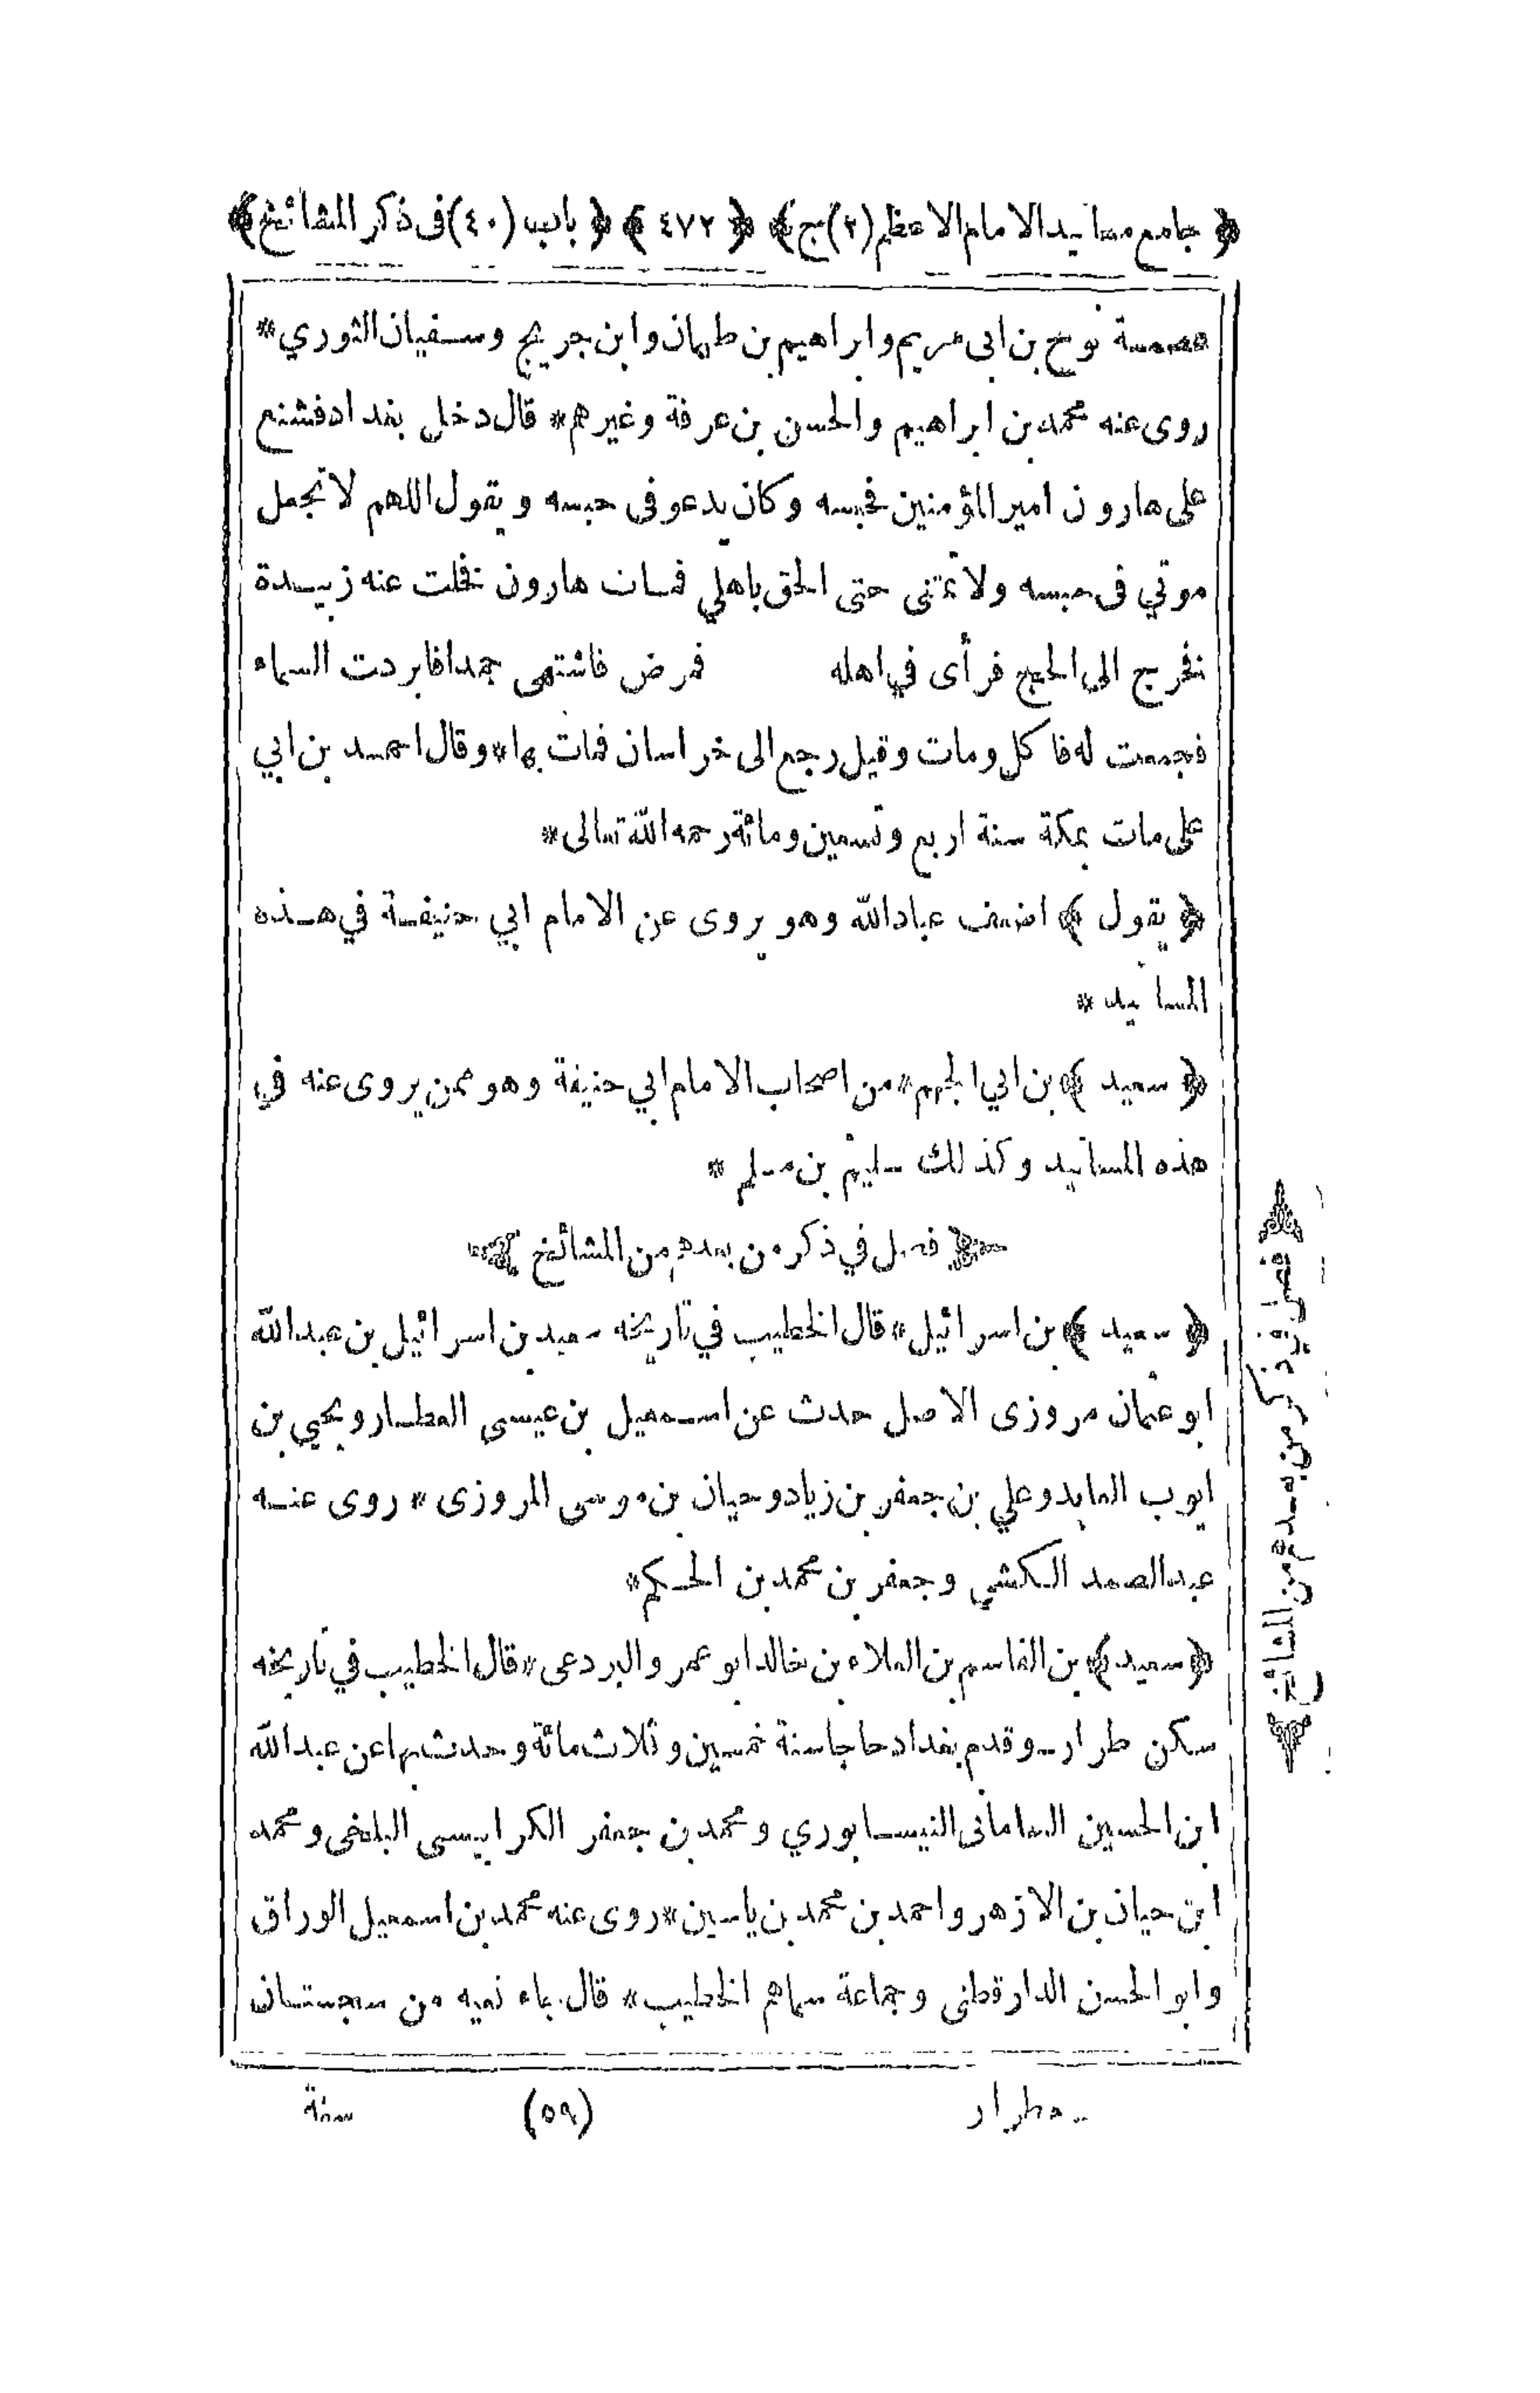 ﴿ جامع مسانيد الامام الاعظم (٢) ج ﴾ ﴿ ٤٧٢ ﴾ ﴿ باب (٤٠) فى ذكر المشائخ ﴾
عصمة نوح بن ابى مريم وابراهيم بن طهمان وابن جريج وسفيان الثوري *
روى عنه محمد بن ابراهيم والحسن بن عرفة وغيرهم * قال دخل بغداد فشنع
على هارون امير المؤمنين فحبسه وكان يدعو فى حبسه ويقول اللهم لا تجعل
موتي فى حبسه ولا تمتنى حتى الحق باهلي فمات هارون فخلت عنه زبيدة
فخرج الي الحج فرأى في اهله فمرض فاشتهى جمدا فابردت السماء
فجمعت له فاكل ومات وقيل رجع الى خراسان فمات بها * وقال احمد بن ابي
على مات بمكة سنة اربع وتسعين ومائة رحمه الله تعالى *
﴿ يقول ﴾ اضعف عباد الله وهو يروى عن الامام ابي حنيفة في هذه
المسانيد *
﴿ سعيد ﴾ بن ابي الجهم * من اصحاب الامام ابي حنيفة وهو ممن يروى عنه في
هذه المسانيد وكذلك سليم بن مسلم *
﴿ فصل في ذكر من بعدهم من المشائخ ﴾
﴿ سعيد ﴾ بن اسرائيل * قال الخطيب في تاريخه سعيد بن اسرائيل بن عبدالله
ابو عثمان مروزى الاصل حدث عن اسمعيل بن عيسى العطار ويحيي بن
ايوب العابد وعلي بن جعفر بن زياد وحيان بن موسى المروزى * روى عنه
عبدالصمد الكشي وجعفر بن محمد بن الحكم *
﴿ سعيد ﴾ بن القاسم بن العلاء بن خالد ابو عمرو البردعى * قال الخطيب في تاريخه
سكن طرار ـ وقدم بغداد حاجا سنة خمسين وثلاث مائة وحدث بها عن عبدالله
ابن الحسين السامانى النيسابوري ومحمد بن جعفر الكرابيسى البلخى ومحمد
ابن حيان بن الازهر واحمد بن محمد بن ياسين * روى عنه محمد بن اسمعيل الوراق
وابو الحسن الدارقطنى وجماعة سماهم الخطيب * قال جاء نعيه من سجستان
ـ مطرار
(٥٩)
سنة
﴿ فصل في ذكر من بعدهم من المشائخ ﴾